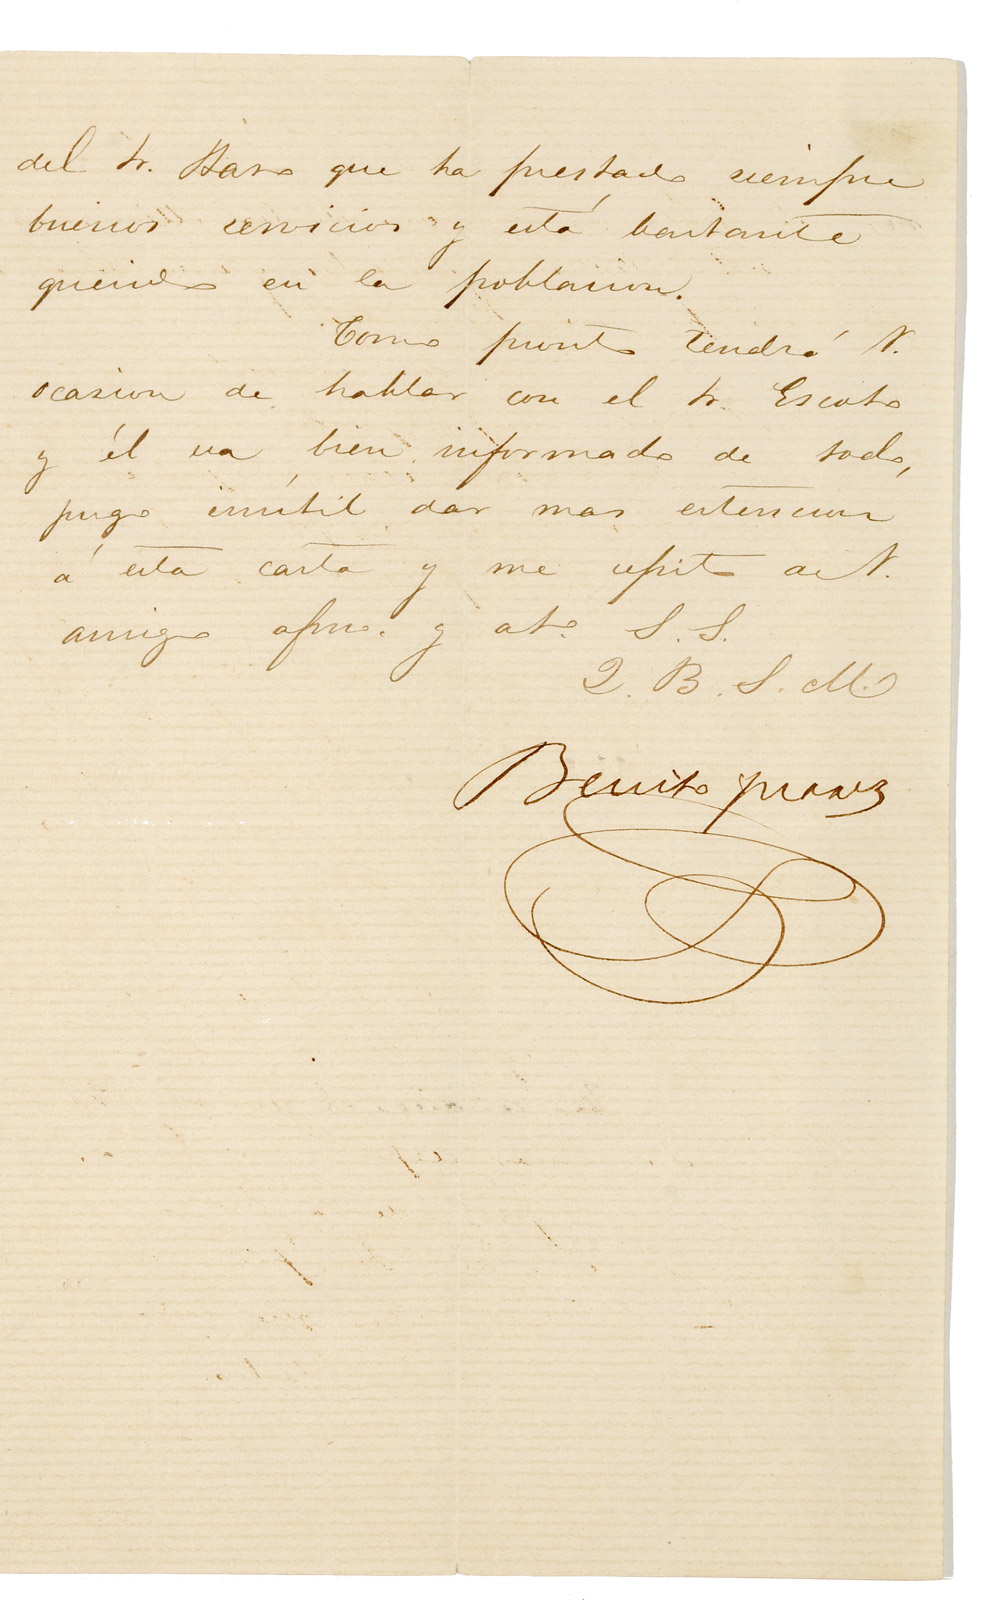 del Sr. Haro que ha prestado siempre
buenos servicios y está bastante
querido en la poblacion.
Como pronto tendrá V.
ocasion de hablar con el Sr. Escoto
y él va bien informado de todo,
jusgo inútil dar mas estencion
á esta carta y me repito de V.
amigo afmo. y ato. S. S.
Q. B. S. M.
Benito Juarez